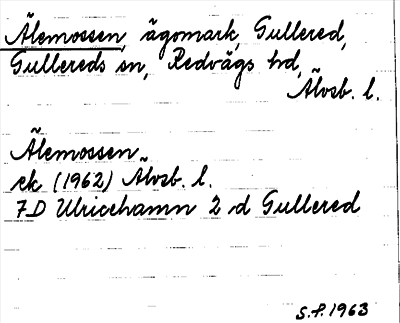 Älemossen, ägomark, Gullered,
Gullereds sn, Redvägs hd,
Älvsb. l.
Älemossen
ek (1962) Älvsb. l.
7D Ulricehamn 2 d Gullered
S.F. 1963